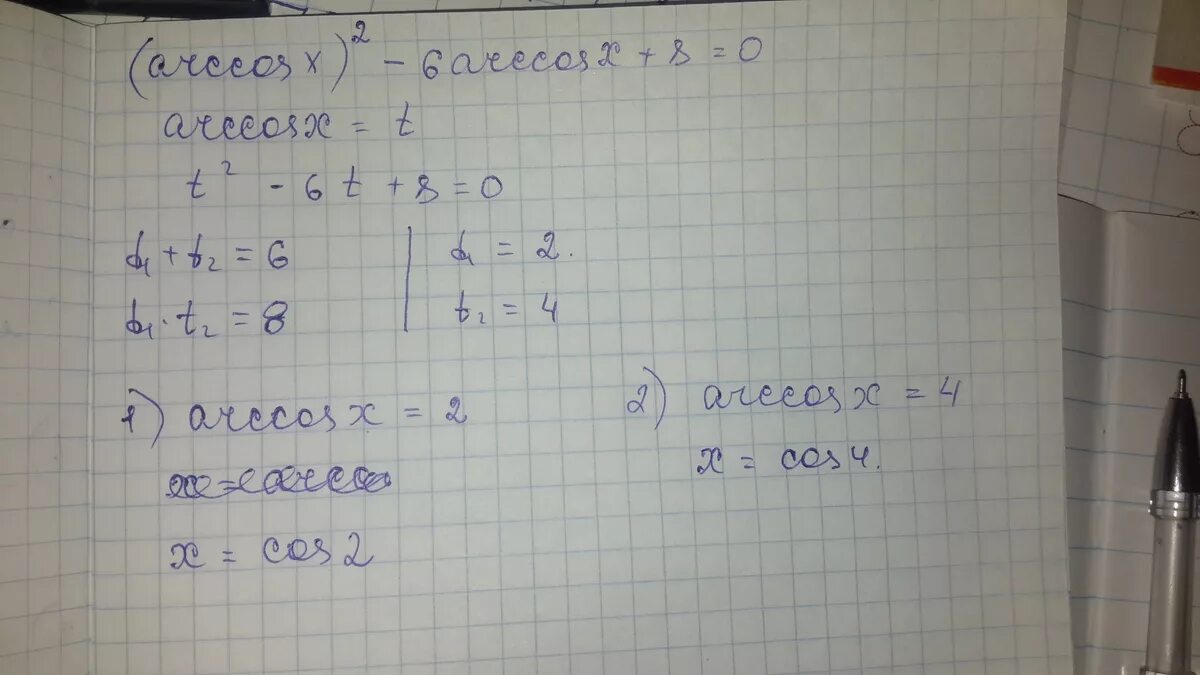 (arccos x)² - 6 arccos x + 8 = 0
arccos x = t
t² - 6t + 8 = 0
t₁ + t₂ = 6 | t₁ = 2.
t₁ · t₂ = 8 | t₂ = 4
1) arccos x = 2 2) arccos x = 4
x = cos 4.
x = cos 2